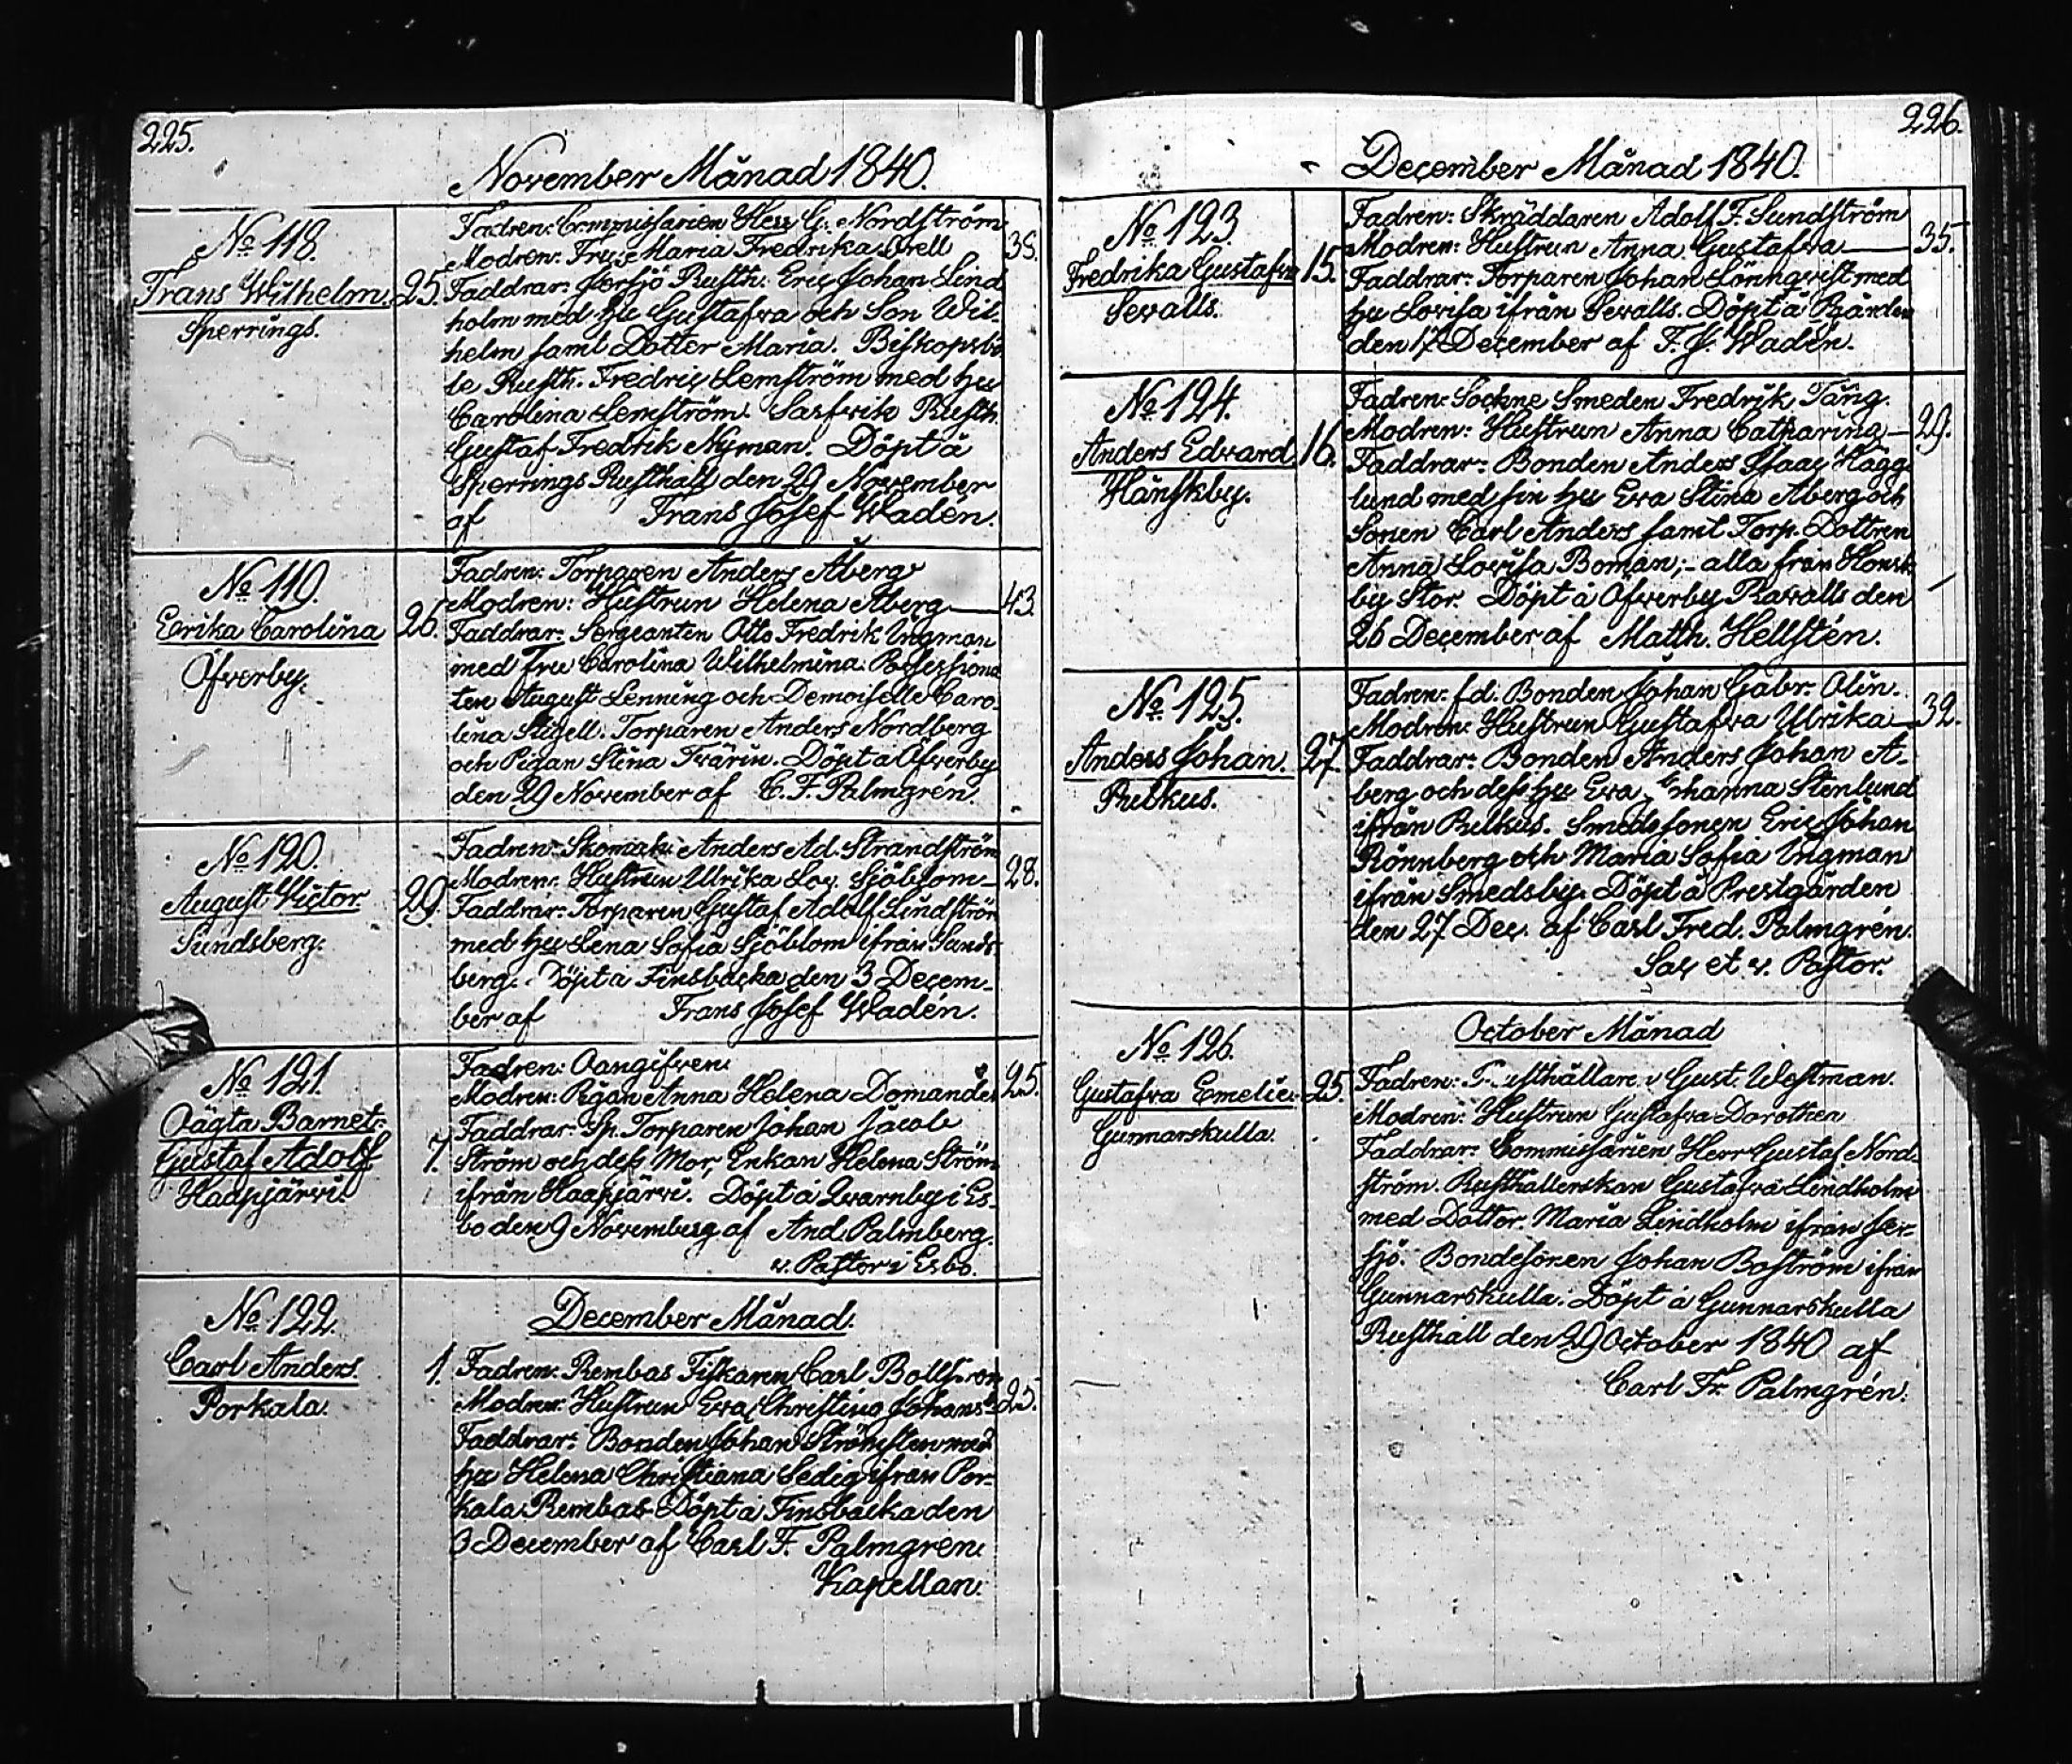 225.
November Månad 1840.
No 118.
Frans Wilhelm. 25.
Sperrings.
Fadren: Commissarien Herr G. Nordström
Modren: Fru Maria Fredrika 38.
Faddrar: Jorsjö Rusth. Eric Johan Lind
holm med hu Gustafva och Son Wil
helm samt Dotter Maria. Biskopsbö
le Rusth. Fredric Lemström med hu
Carolina Lemström. Sarfvik Rusth.
Gustaf Fredrik Nyman. Döpt å
Sperrings Rusthåll den 29 November
af Frans Josef Wadén.
No 119.
Erika Carolina 26.
Öfverby.
Fadren: Torparen Anders Åberg
Modren: Hustrun Helena Åberg — 43.
Faddrar: Sergeanten Otto Fredrik Ingman
med Fru Carolina Wilhelmina. Possessiona
ten August Lenning och Demoiselle Caro-
lina Stigell. Torparen Anders Nordberg
och Pigan Stina Tvärin. Döpt å Öfverby
den 29 November af C. F. Palmgrén.
No 120.
August Victor 29.
Sundsberg.
Fadren: Skomak: Anders Ad. Strandström
Modren: Hustrun Ulrika Lov. Sjöblom — 28.
Faddrar: Torparen Gustaf Adolf Lindström
med hu Lena Sofia Sjöblom ifrån Sunds-
berg. Döpt å Finsbacka den 3 Decem-
ber af Frans Josef Wadén.
No 121.
Oägta Barnet:
Gustaf Adolf 7.
Haapjärvi.
Fadren: Oangifven.
Modren: Pigan Anna Helena Domander 25.
Faddrar: Sp. Torparen Johan Jacob
Ström och dess Mor, Enkan Helena Ström
ifrån Haapjärvi. Döpt å Qvarnby i Es-
bo den 9 November af And. Palmberg.
v. Pastor i Esbo.
No 122.
Carl Anders. 1.
Porkala.
December Månad.
Fadren: Rembas Fiskaren Carl Bollström
Modren: Hustrun Eva Christina Johansd. 25.
Faddrar: Bonden Johan Strömsten med
hu Helena Christiana Sedig ifrån Por-
kala Rembas. Döpt å Finsbacka den
3 December af Carl F. Palmgren
Kapellan.
226.
December Månad 1840.
No 123.
Fredrika Gustafva 15.
Sevalls.
Fadren: Skräddaren Adolf F. Sundström
Modren: Hustrun Anna Gustafva — 35.
Faddrar: Torparen Johan Lönnqvist med
hu Lovisa ifrån Sevalls. Döpt å Pgården
den 17 December af F. J. Wadén.
No 124.
Anders Edvard. 16.
Hänskby.
Fadren: Sockne Smeden Fredrik Tång.
Modren: Hustrun Anna Catharina — 29.
Faddrar: Bonden Anders Isaac Hägg-
lund med sin hu Eva Stina Åberg och
Sonen Carl Anders samt Torp. Dottren
Anna Lovisa Boman; - alla från Honsk-
by Stor. Döpt å Öfverby Ravalls den
26 December af Matth. Hellstén.
No 125.
Anders Johan. 27.
Pulkus.
Fadren: f.d. Bonden Johan Gabr. Olin.
Modren: Hustrun Gustafva Ulrika — 32.
Faddrar: Bonden Anders Johan Å-
berg och dess hu Eva Johanna Stenlund
ifrån Pulkus. Smedssonen Eric Johan
Rönnberg och Maria Sofia Ingman
ifrån Smedsby. Döpt å Prestgården
den 27 Dec. af Carl Fred. Palmgrén.
Sac et v. Pastor.
October Månad
No 126.
Gustafva Emelie. 25.
Gunnarskulla.
Fadren: Rusthållare Gust. Westman.
Modren: Hustrun Gustafva Dorothea
Faddrar: Commissarien Herr Gustaf Nord-
ström. Rusthållerskan Gustafva Lindholm
med Dotter Maria Lindholm ifrån Jor-
sjö. Bondesonen Johan Boström ifrån
Gunnarskulla. Döpt å Gunnarskulla
Rusthåll den 29 October 1840 af
Carl Fr. Palmgrén.